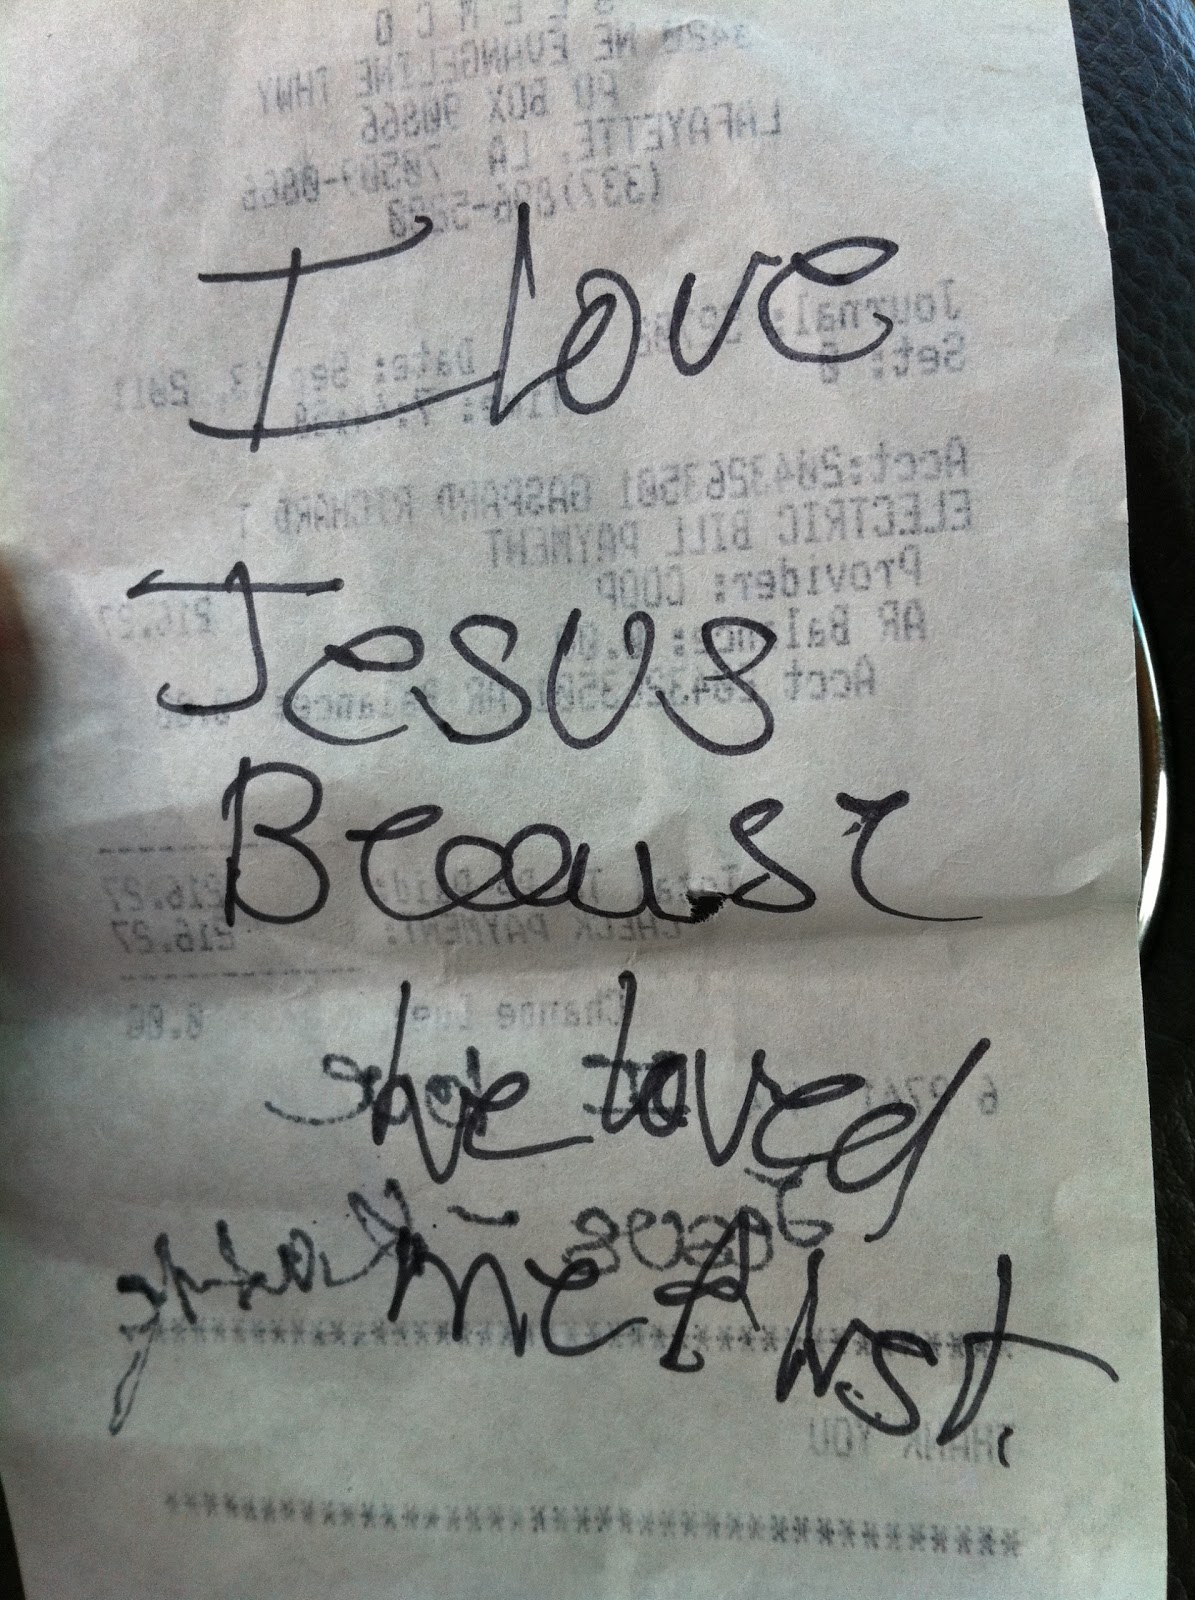 SLEMCO
3420 NE EVANGELINE THWY
PO BOX 90866
LAFAYETTE, LA 70509-0866
(337)896-5200
I love
Journal:
Date: Sep 13, 2011
Set: 0
Acct:2043263501 GASPARD RICHARD T
ELECTRIC BILL PAYMENT
Provider: COOP 216.27
AR Balance: 0.00
Jesus
Acct 2043263501 AR Balance: 0.00
Because
Total To Be Paid: 216.27
CHECK PAYMENT: 216.27
Change Due: 0.00
he loved
Jesus
me first.
THANK YOU